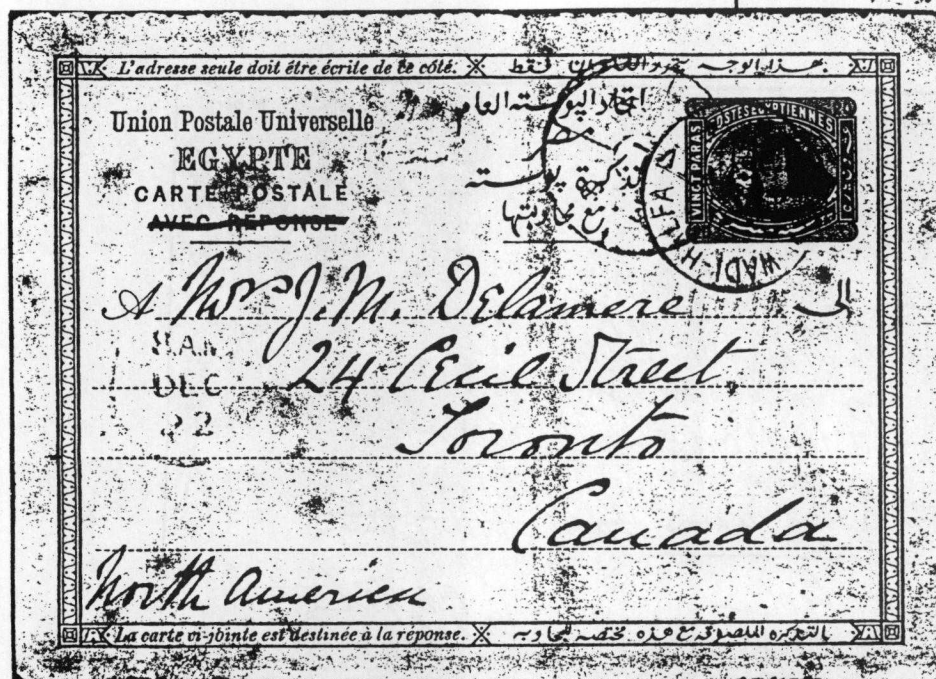 L'adresse seule doit étre écrite de ce côté.
Union Postale Universelle
EGYPTE
CARTE POSTALE
AVEC REPONSE
اتحاد البوسته العام
مصر
تذكرة بوسته
مع مجاوبتها
POSTES EGYPTIENNES
VINGT PARAS
WADI-HALFA
A Mrs J. M. Delamere
الى
24 Cecil Street,
Toronto
Canada
North America
DEC
22
La carte ci-jointe est destinée à la réponse.